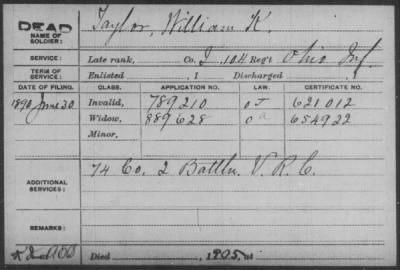 DEAD
NAME OF SOLDIER: Taylor, William K.
SERVICE: Late rank, Co. I, 104 Regt. Ohio Inf.
TERM OF SERVICE: Enlisted , 1 Discharged , 1
DATE OF FILING. CLASS. APPLICATION NO. LAW. CERTIFICATE NO.
1890 June 30 Invalid, 789210 621012
Widow, 889628 654922
Minor,
ADDITIONAL SERVICES: 74 Co. 2 Battln. V. R. C.
REMARKS:
Died , 1905, at